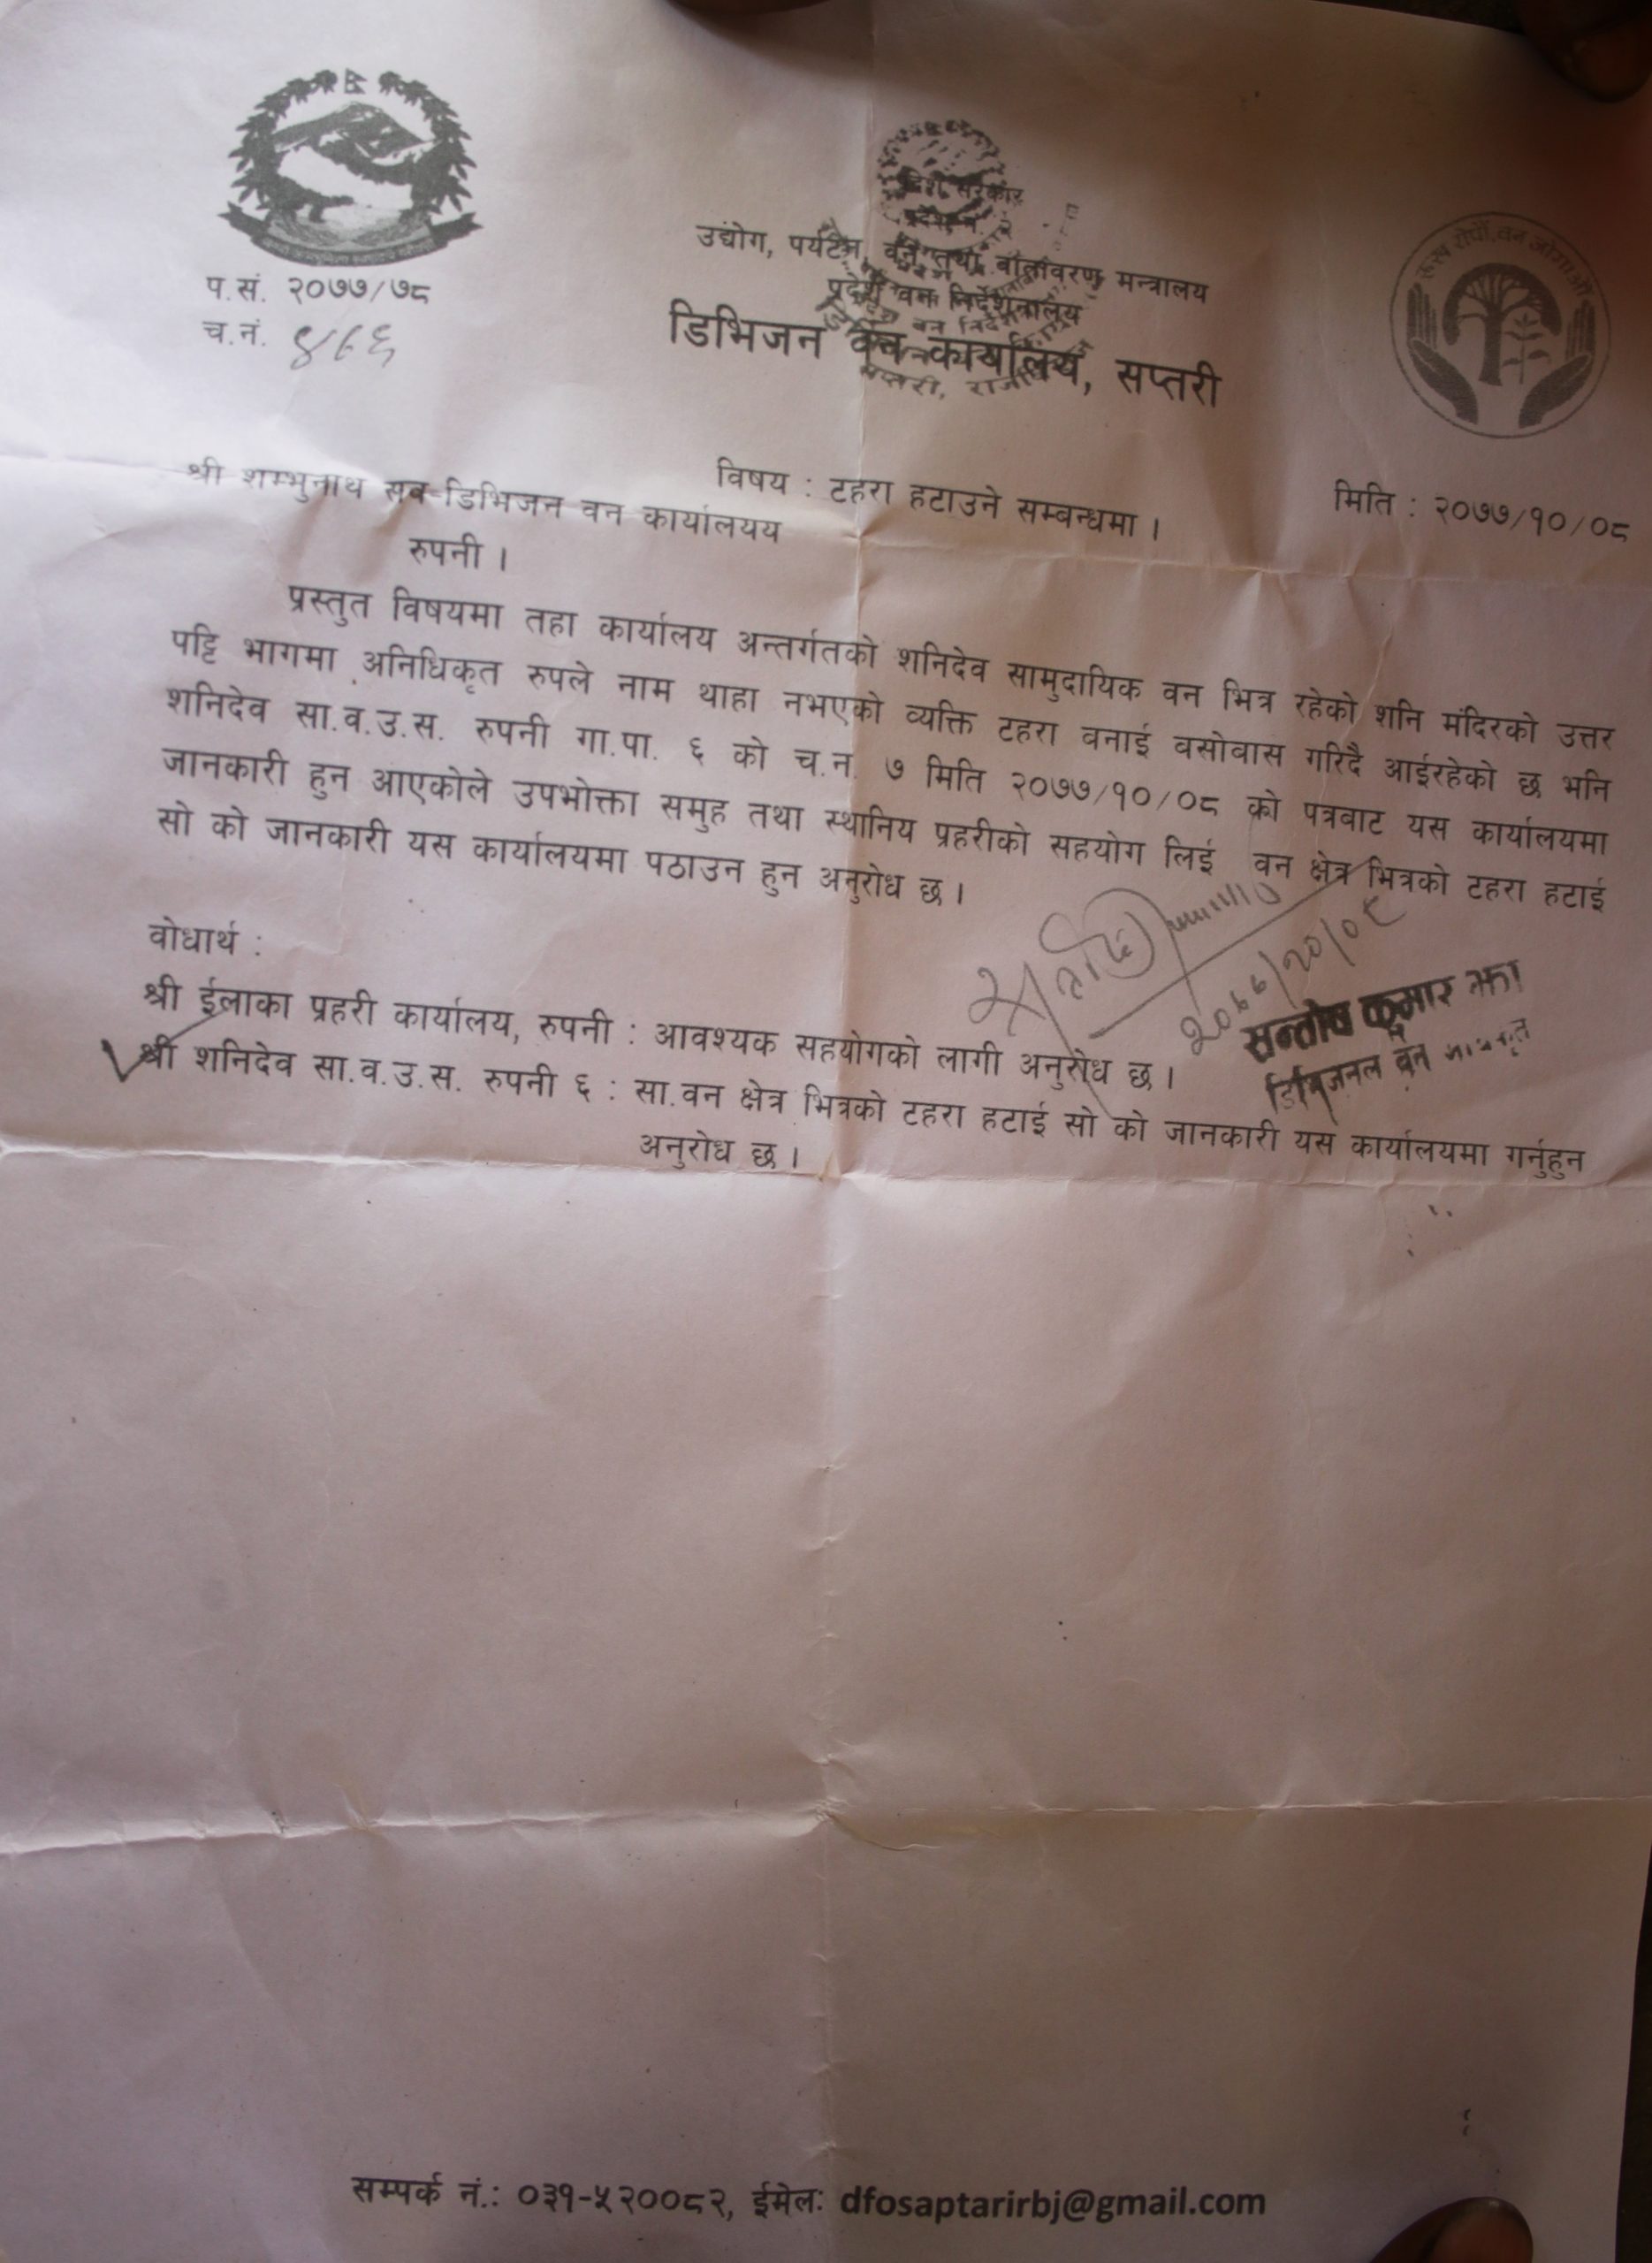 प.सं. २०७७/७८
च.नं.
प्रदेश सरकार
प्रदेश नं. २
उद्योग, पर्यटन, वन तथा वातावरण मन्त्रालय
प्रदेश वन निर्देशनालय
डिभिजन वन कार्यालय, सप्तरी
रुख रोपौं, वन जोगाऔं
विषय : टहरा हटाउने सम्बन्धमा ।
मिति : २०७७/१०/०८
श्री शम्भुनाथ सव-डिभिजन वन कार्यालयय
रुपनी ।
प्रस्तुत विषयमा तहा कार्यालय अन्तर्गतको शनिदेव सामुदायिक वन भित्र रहेको शनि मंदिरको उत्तर
पट्टि भागमा अनिधिकृत रुपले नाम थाहा नभएको व्यक्ति टहरा वनाई वसोवास गरिदै आईरहेको छ भनि
शनिदेव सा.व.उ.स. रुपनी गा.पा. ६ को च.न. ७ मिति २०७७/१०/०८ को पत्रवाट यस कार्यालयमा
जानकारी हुन आएकोले उपभोक्ता समुह तथा स्थानिय प्रहरीको सहयोग लिई वन क्षेत्र भित्रको टहरा हटाई
सो को जानकारी यस कार्यालयमा पठाउन हुन अनुरोध छ ।
२०७७/१०/०८
सन्तोष कुमार झा
डिभिजनल वन
वोधार्थ :
श्री ईलाका प्रहरी कार्यालय, रुपनी : आवश्यक सहयोगको लागी अनुरोध छ ।
श्री शनिदेव सा.व.उ.स. रुपनी ६ : सा.वन क्षेत्र भित्रको टहरा हटाई सो को जानकारी यस कार्यालयमा गर्नुहुन
अनुरोध छ ।
सम्पर्क नं.: ०३१-५२००८२, ईमेल: dfosaptarirbj@gmail.com